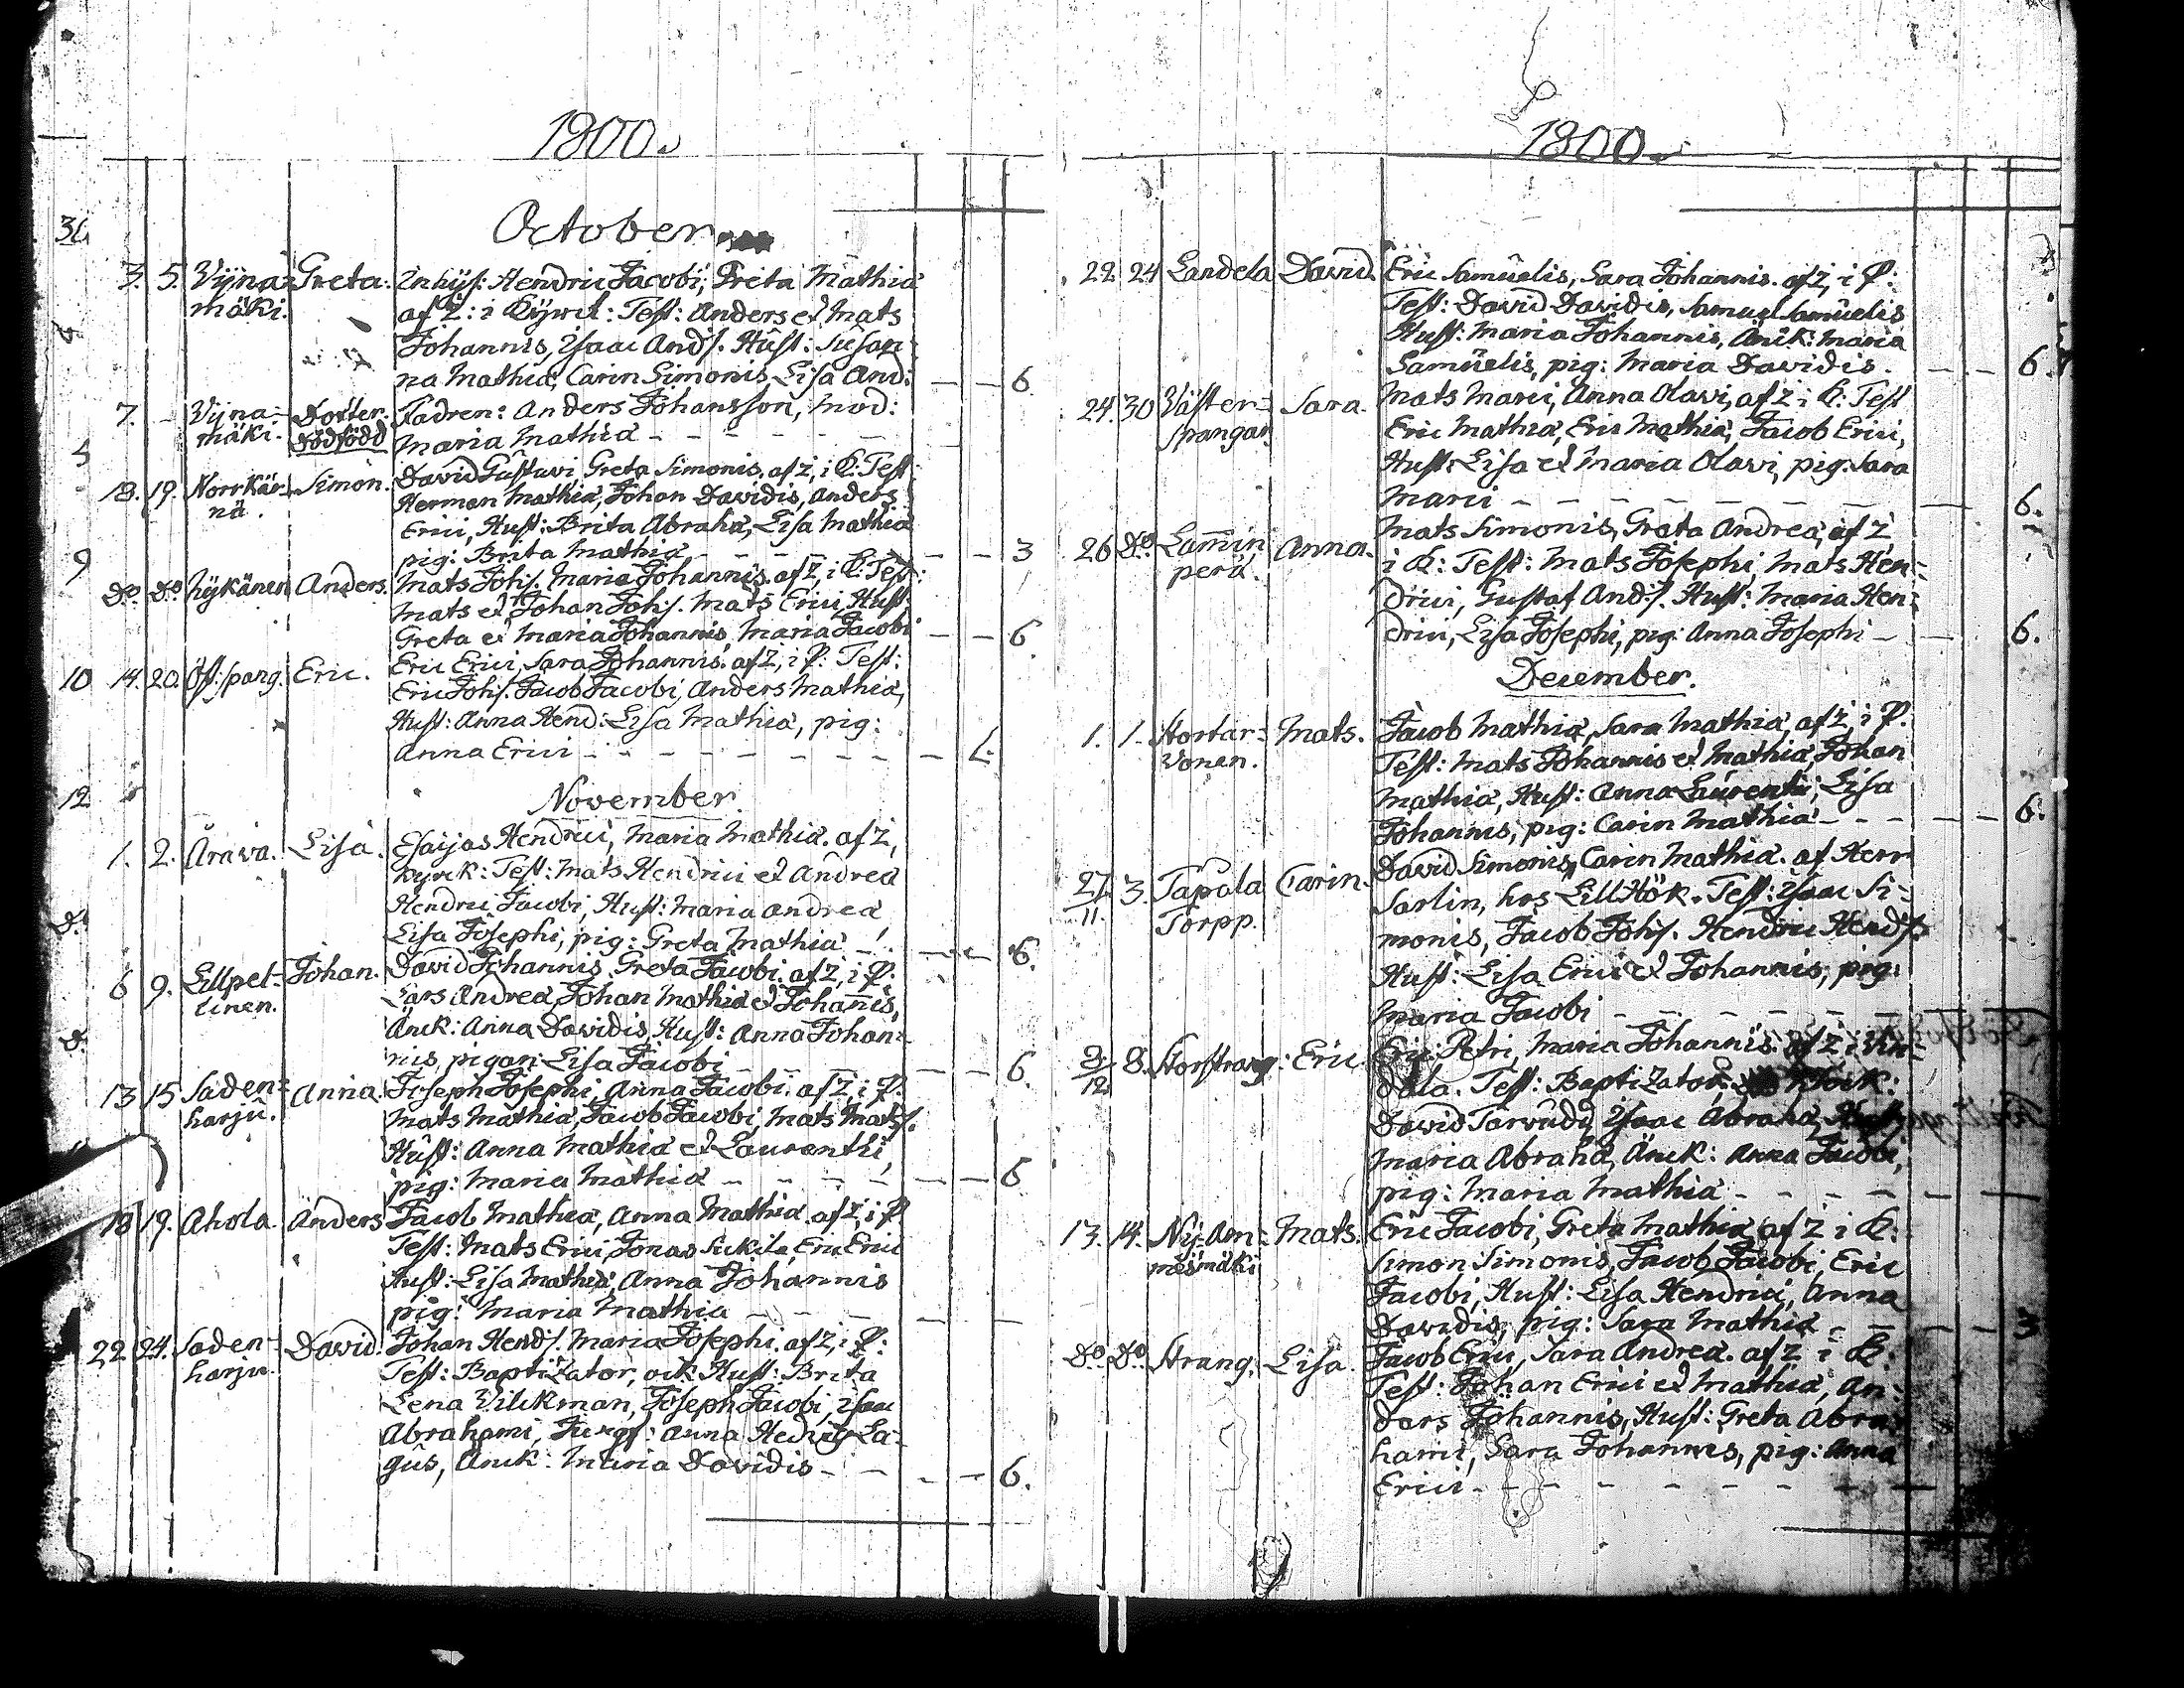 1800.
October
3. 5. Vÿna= Greta. Inhÿs: Hendric Jacobi, Greta Mathiæ
mäki. af Z: i Kÿrck: Test: Anders et Mats
Johannis, Isaac Ands. Hust: Susan-
na Mathiæ, Carin Simonis, Lisa And: — — 6.
7. — Vÿna- Dotter. Fadren: Anders Johansson, Mod:
mäki. dödfödd Maria Mathiæ — — —
18. 19. Norrkär- Simon. David Gustavi Greta Simonis. af Z, i K: Test:
nä. Herman Mathiæ, Johan Davidis, Anders
Erici, Hust: Brita Abrahæ, Lisa Mathiæ
pig: Brita Mathiæ — — 3
Do Do Nÿkänen Anders. Mats Johs. Maria Johannis. af Z, i K: Test:
Mats et Johan Johs. Mats Erici, Hust:
Greta et Maria Johannis Maria Jacobi — — 6.
14. 20. Öst: spang. Eric. Eric Erici, Sara Johannis. af Z, i P: Test:
Eric Johs. Jacob Jacobi, Anders Mathiæ,
Hust: Anna Hend: Lisa Mathiæ, pig:
Anna Erici — — —
November.
1. 2. Arava. Lisa. Esaijas Hendrici, Maria Mathiæ. af Z,
Kyrck: Test: Mats Hendrici et Andreæ
Hendric Jacobi, Hust: Maria Andreæ
Lisa Josephi, pig: Greta Mathiæ — — 6.
6 9. Lillpel- Johan. David Johannis Greta Jacobi. af Z, i P:
tinen. Lars Andreæ, Johan Mathiæ et Johannis,
Änck: Anna Davidis, Hust: Anna Johan-
nis, pigan: Lisa Jacobi — — 6.
13 15 Saden= Anna. Joseph Josephi, Anna Jacobi. af Z, i P.
harju. Mats Mathiæ, Jacob Jacobi, Mats Mats.
Hust: Anna Mathiæ et Laurenthi,
pig: Maria Mathiæ — — 6
18 19. Ahola. Anders Jacob Mathiæ, Anna Mathiæ. af Z, i P
Test: Mats Erici, Jonas Sickila, Eric Erici
Hust: Lisa Mathiæ, Anna Johannis
pig: Maria Mathiæ — — —
22 24. Saden- David. Johan Hends. Maria Josephi. af Z, i P:
harju. Test: Baptizator, ock Hust: Brita
Lena Vilckman, Joseph Jacobi, Isaac
Abrahami, Jungf: Anna Hedvig La-
gus, Änck: Maria Davidis — — 6.
1800.
22. 24 Sandela David. Eric Samuelis, Sara Johannis. af Z, i P:
Test: David Davidis, Samuel Samuelis
Hust: Maria Johannis, Änck: Maria
Samuelis, pig: Maria Davidis. — — 6.
24. 30 Väster= Sara. Mats Marci, Anna Olavi, af Z i K: Test
spangar Eric Mathiæ, Eric Mathiæ, Jacob Erici,
Hust: Lisa et Maria Olavi, pig: Sara
Marci — — — 6.
26 Do. Lamin Anna. Mats Simonis, Greta Andreæ, af Z
perä. i K: Test: Mats Josephi, Mats Hen-
drici, Gustaf Ands. Hust: Maria Hen-
drici, Lisa Josephi, pig: Anna Josephi — — 6.
December.
1. 1. Mats. Jacob Mathiæ, Sara Mathiæ, af Z, i P.
vonen. Test: Mats Johannis et Mathiæ, Johan
Mathiæ, Hust: Anna Laurentii, Lisa
Johannis, pig: Carin Mathiæ — — 6.
27/11 3. Tapola Carin. David Simonis, Carin Mathiæ. af Herr
Torpp. Sarlin, hos Lill Hök. Test: Isaac Si-
monis, Jacob Johs. Hendric Hends.
Hust: Lisa Erici et Johannis, pig:
Maria Jacobi — — —
2/12 8. Storstrang: Eric. Eric Petri, Maria Johannis. af Z i Vin-
dala. Test: Baptizator, Klock:
David Tarvudi, Isaac Abrahæ, Hust:
Maria Abrahæ, Änck: Anna Jacobi,
pig: Maria Mathiæ — — —
13. 14. Mats. Eric Jacobi, Greta Mathiæ, af Z i K:
Simon Simonis, Jacob Jacobi, Eric
Jacobi, Hust: Lisa Hendrici, Anna
Davidis, pig: Sara Mathiæ — — 3
Do. Do. Strang. Lisa. Jacob Erici, Sara Andreæ. af Z i K:
Test: Johan Erici et Mathiæ, An-
ders Johannis, Hust: Greta Abra-
hami, Sara Johannis, pig: Anna
Erici — — —